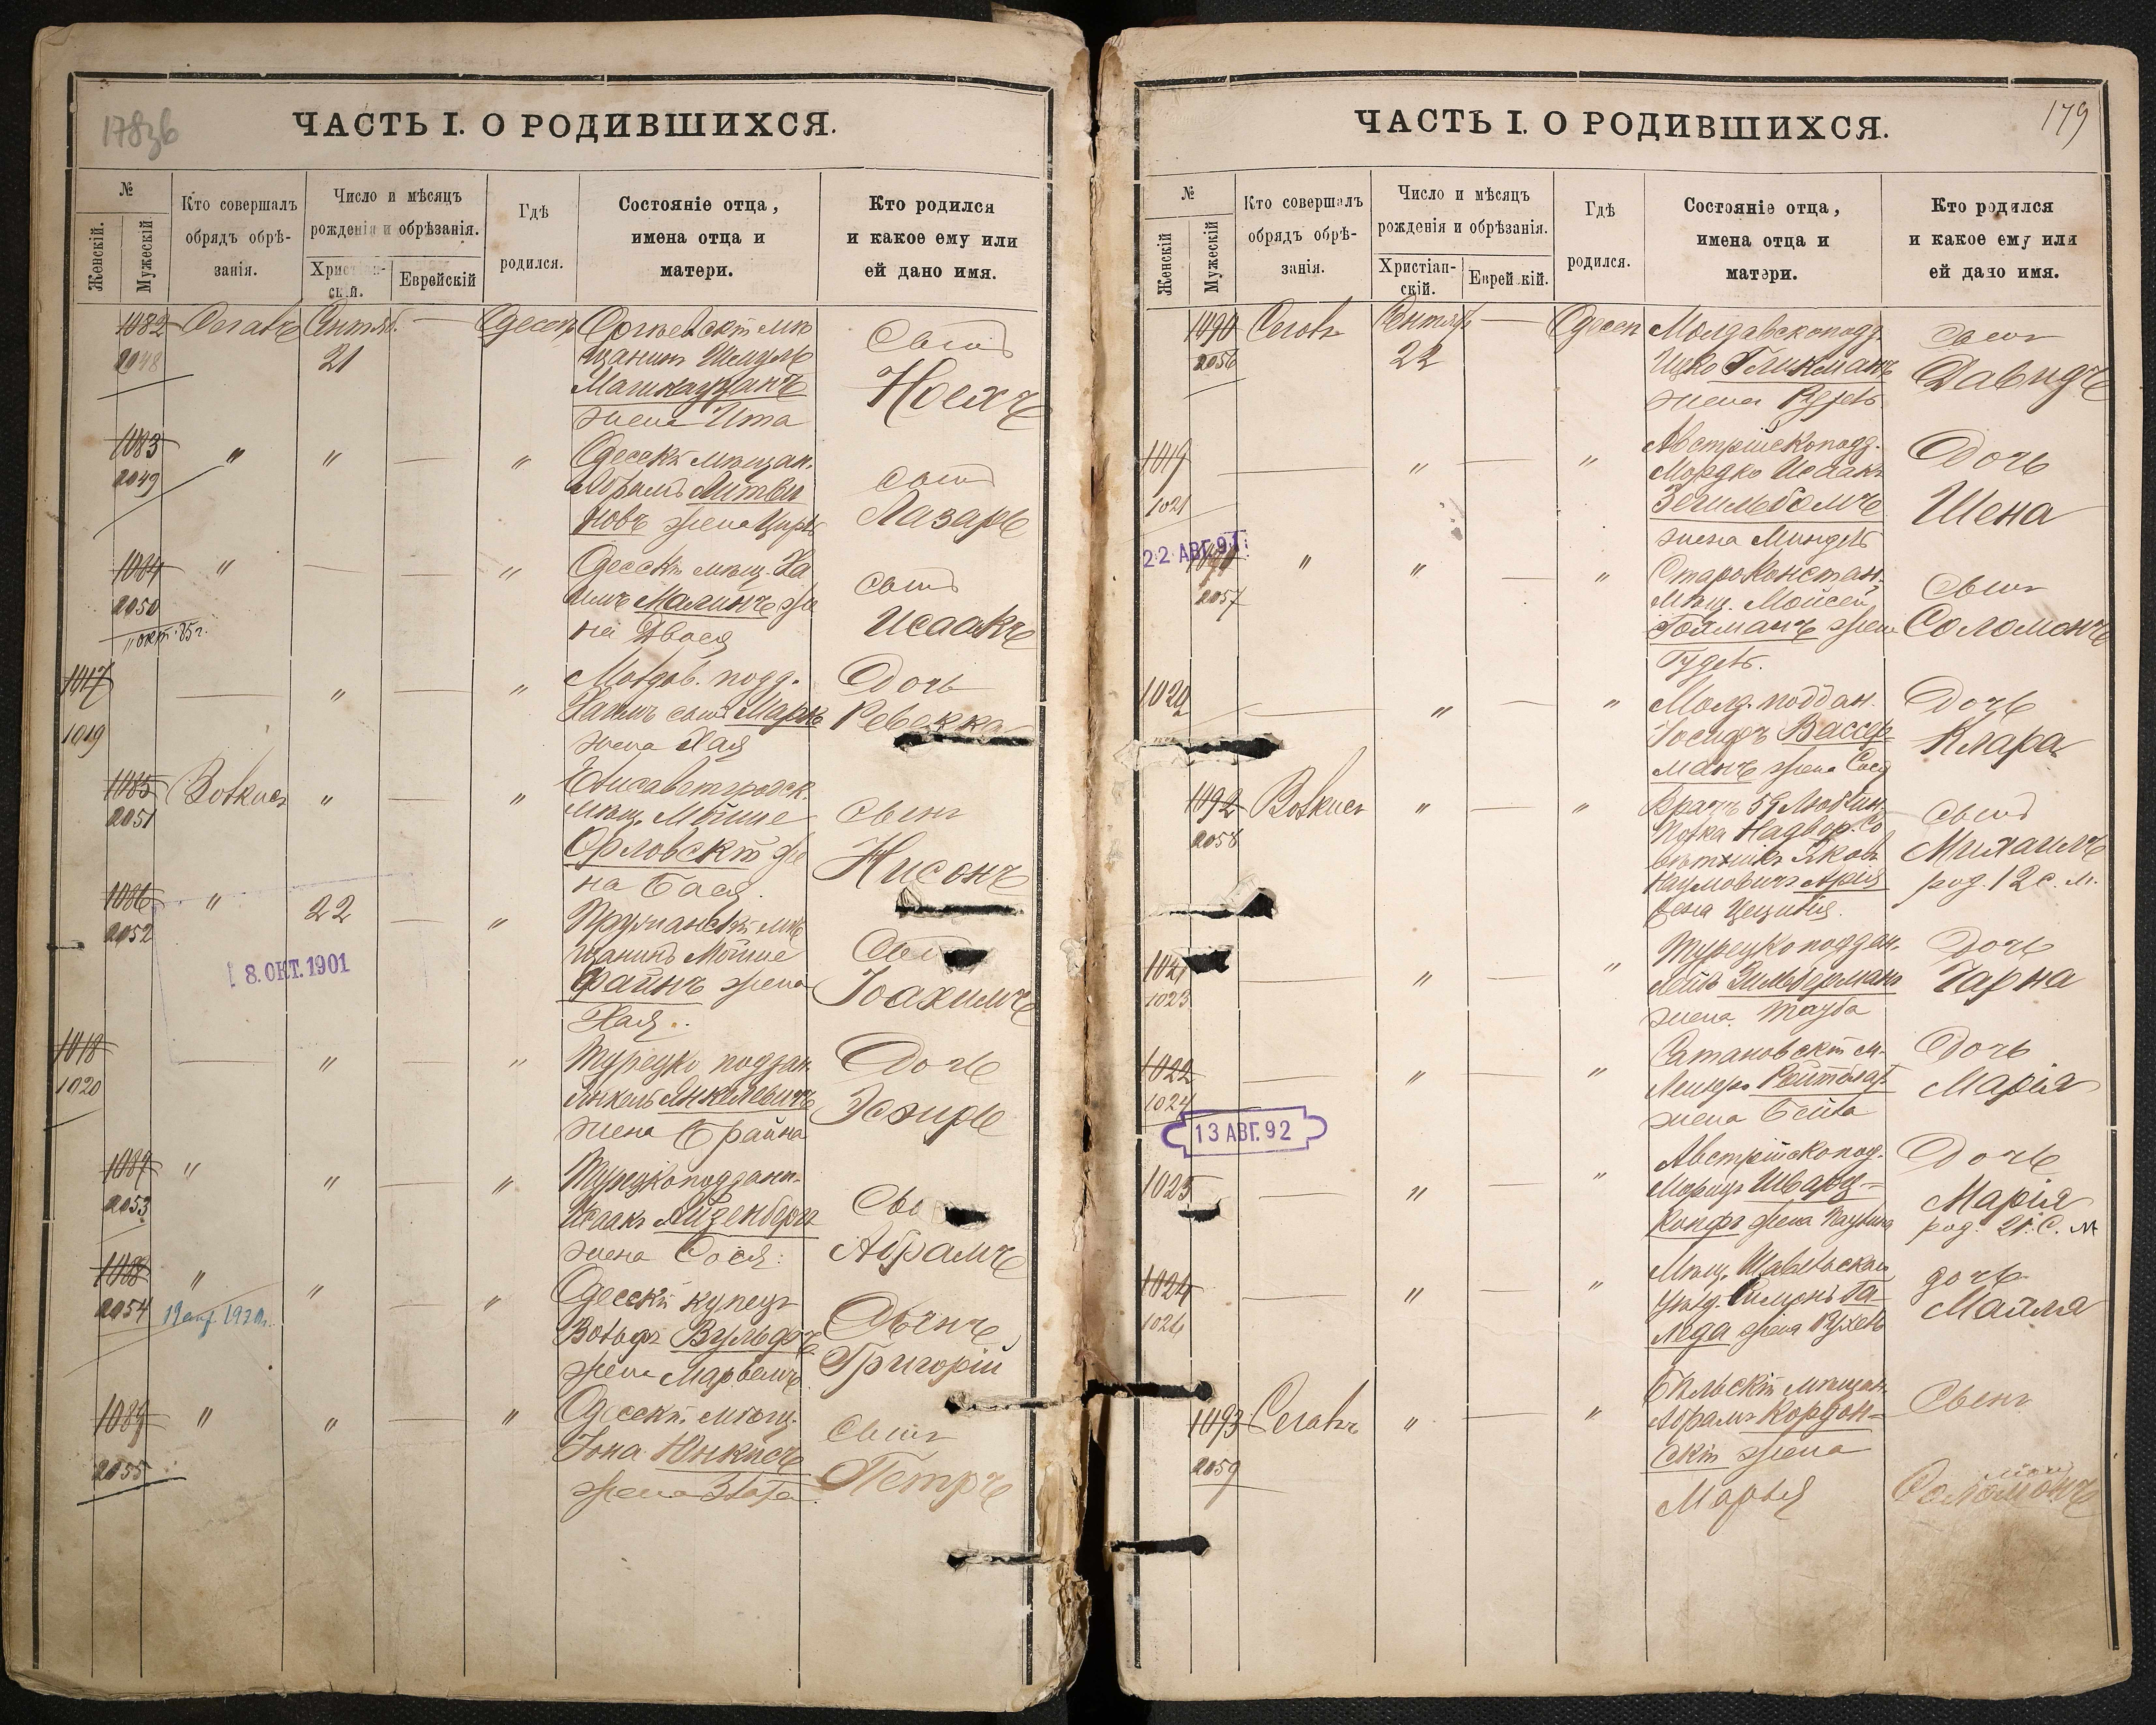 178зв
ЧАСТЬ I. О РОДИВШИХСЯ.
№
Женскій.
Мужескій
Кто совершалъ
обрядъ обрѣ-
занія.
Число и мѣсяцъ
рожденія и обрѣзанія.
Христіан-
скій.
Еврейскій
Гдѣ
родился.
Состояніе отца,
имена отца и
матери.
Кто родился
и какое ему или
ей дано имя.
1082
2048
Сегалъ
Сентяб.
21
Одесса
Оргѣевскій мѣ
щанинъ
жена Ита
Сынъ
Ноехъ
1083
2049
"
"
"
Одесскій мѣщан.
Абрамъ Литви
новъ жена
сынъ
Лазарь
1084
2050
окт. 85 г.
"
"
Одесскій мѣщ. Ха
имъ Малинъ же
на Двося
сынъ
Исаакъ
1017
1019
"
"
Молдов. подд.
Хаимъ
жена Хая
Дочь
Ревекка
1085
2051
Волкисъ
"
"
Елисаветградск.
мѣщ. Мойше
Орловскій же
на Бася.
сынъ
Нисонъ
1086
2052
"
22
"
Пружанскій мѣ
щанинъ Мойше
Файнъ жена
Хая.
Сынъ
Іоахимъ
8.ОКТ.1901
1018
1020
"
"
Турецко поддан.
Янкель Янкелевичъ
жена Брайна
Дочь
Эсфирь
1087
2053
"
"
"
Турецкоподданн.
Исаакъ Айзенбергъ
жена Сося.
Сы
Абрамъ
1088
2054
"
"
"
Одесскій купецъ
Вольфъ Вульфъ
жена
Сынъ
Григорій
1089
2055
"
"
"
Одесскій мѣщ.
Іона Юнкисъ
жена Злата.
Сынъ
Петръ
179
ЧАСТЬ I. О РОДИВШИХСЯ.
№
Женскій
Мужескій
Кто совершалъ
обрядъ обрѣ-
занія.
Число и мѣсяцъ
рожденія и обрѣзанія.
Христіан-
скій.
Еврейскій.
Гдѣ
родился.
Состояніе отца,
имена отца и
матери.
Кто родился
и какое ему или
ей дано имя.
1090
2056
Сегалъ
Сентяб
22
Одесса
Молдавскоподд.
Ицко Гликманъ
жена Рухль
сынъ
Давидъ
1019
1021
"
"
Австрійскоподд.
Мордко Исаакъ
жена Миндль
Дочь
Шена
22 АВГ.91.
2057
"
"
"
Староконстан.
мѣщ. Мойсей
Гойманъ жена
Гудль.
Сынъ
Соломонъ
1020
"
"
Молд. поддан.
Іосифъ Вассер
манъ жена Сося
Дочь
Клара
1092
2058
Волкисъ
"
"
Врачъ 59 Люблин.
Полка Надвор. Со
вѣтникъ Яковъ
Наумовичъ
жена Цецилія.
сынъ
Михаилъ
род. 12 с. м.
1021
1023
"
"
Турецко поддан.
Лейб Зильберманъ
жена Тауба
Дочь
Чарна
1022
1024
"
"
Сатановскій м.
жена Бейла
Дочь
Марія
13 АВГ.92
1025
"
"
Австрійскопод.
Морицъ Шварц-
копфъ жена Паулина
Дочь
Марія
род. 21. С. М
1024
1026
"
"
Мѣщ. Шавльскаго
уѣзд. Симонъ Га
леда жена Рухль
дочь
Малля
1093
2059
Сегалъ
"
"
Бѣльскій мѣщан.
Абрамъ Кордон-
скій жена
Марья
Сынъ
Соломонъ